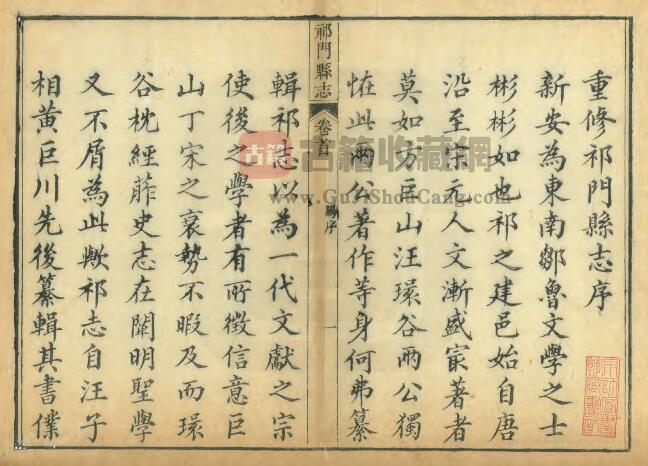 重修祁門縣志序
新安為東南鄒魯文學之士
彬彬如也祁之建邑始自唐
沿至宋元人文漸盛寂著者
莫如方巨山汪環谷兩公獨
恠此兩公著作等身何弗纂
祁門縣志
卷首
序
一
輯祁志以為一代文獻之宗
使後之學者有所徵信意巨
山丁宋之衰勢不暇及而環
谷枕經葄史志在闡明聖學
又不屑為此歟祁志自汪子
相黃巨川先後纂輯其書僕
古籍
古籍收藏網
www.GuJiShouCang.com